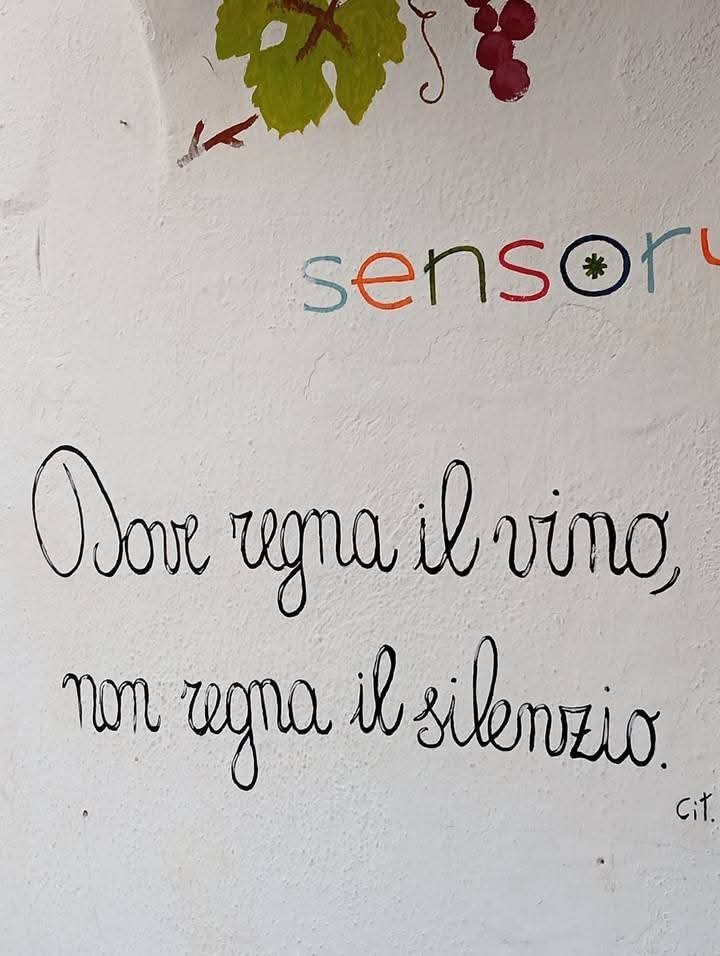 sensory
Dove regna il vino,
non regna il silenzio.
cit.